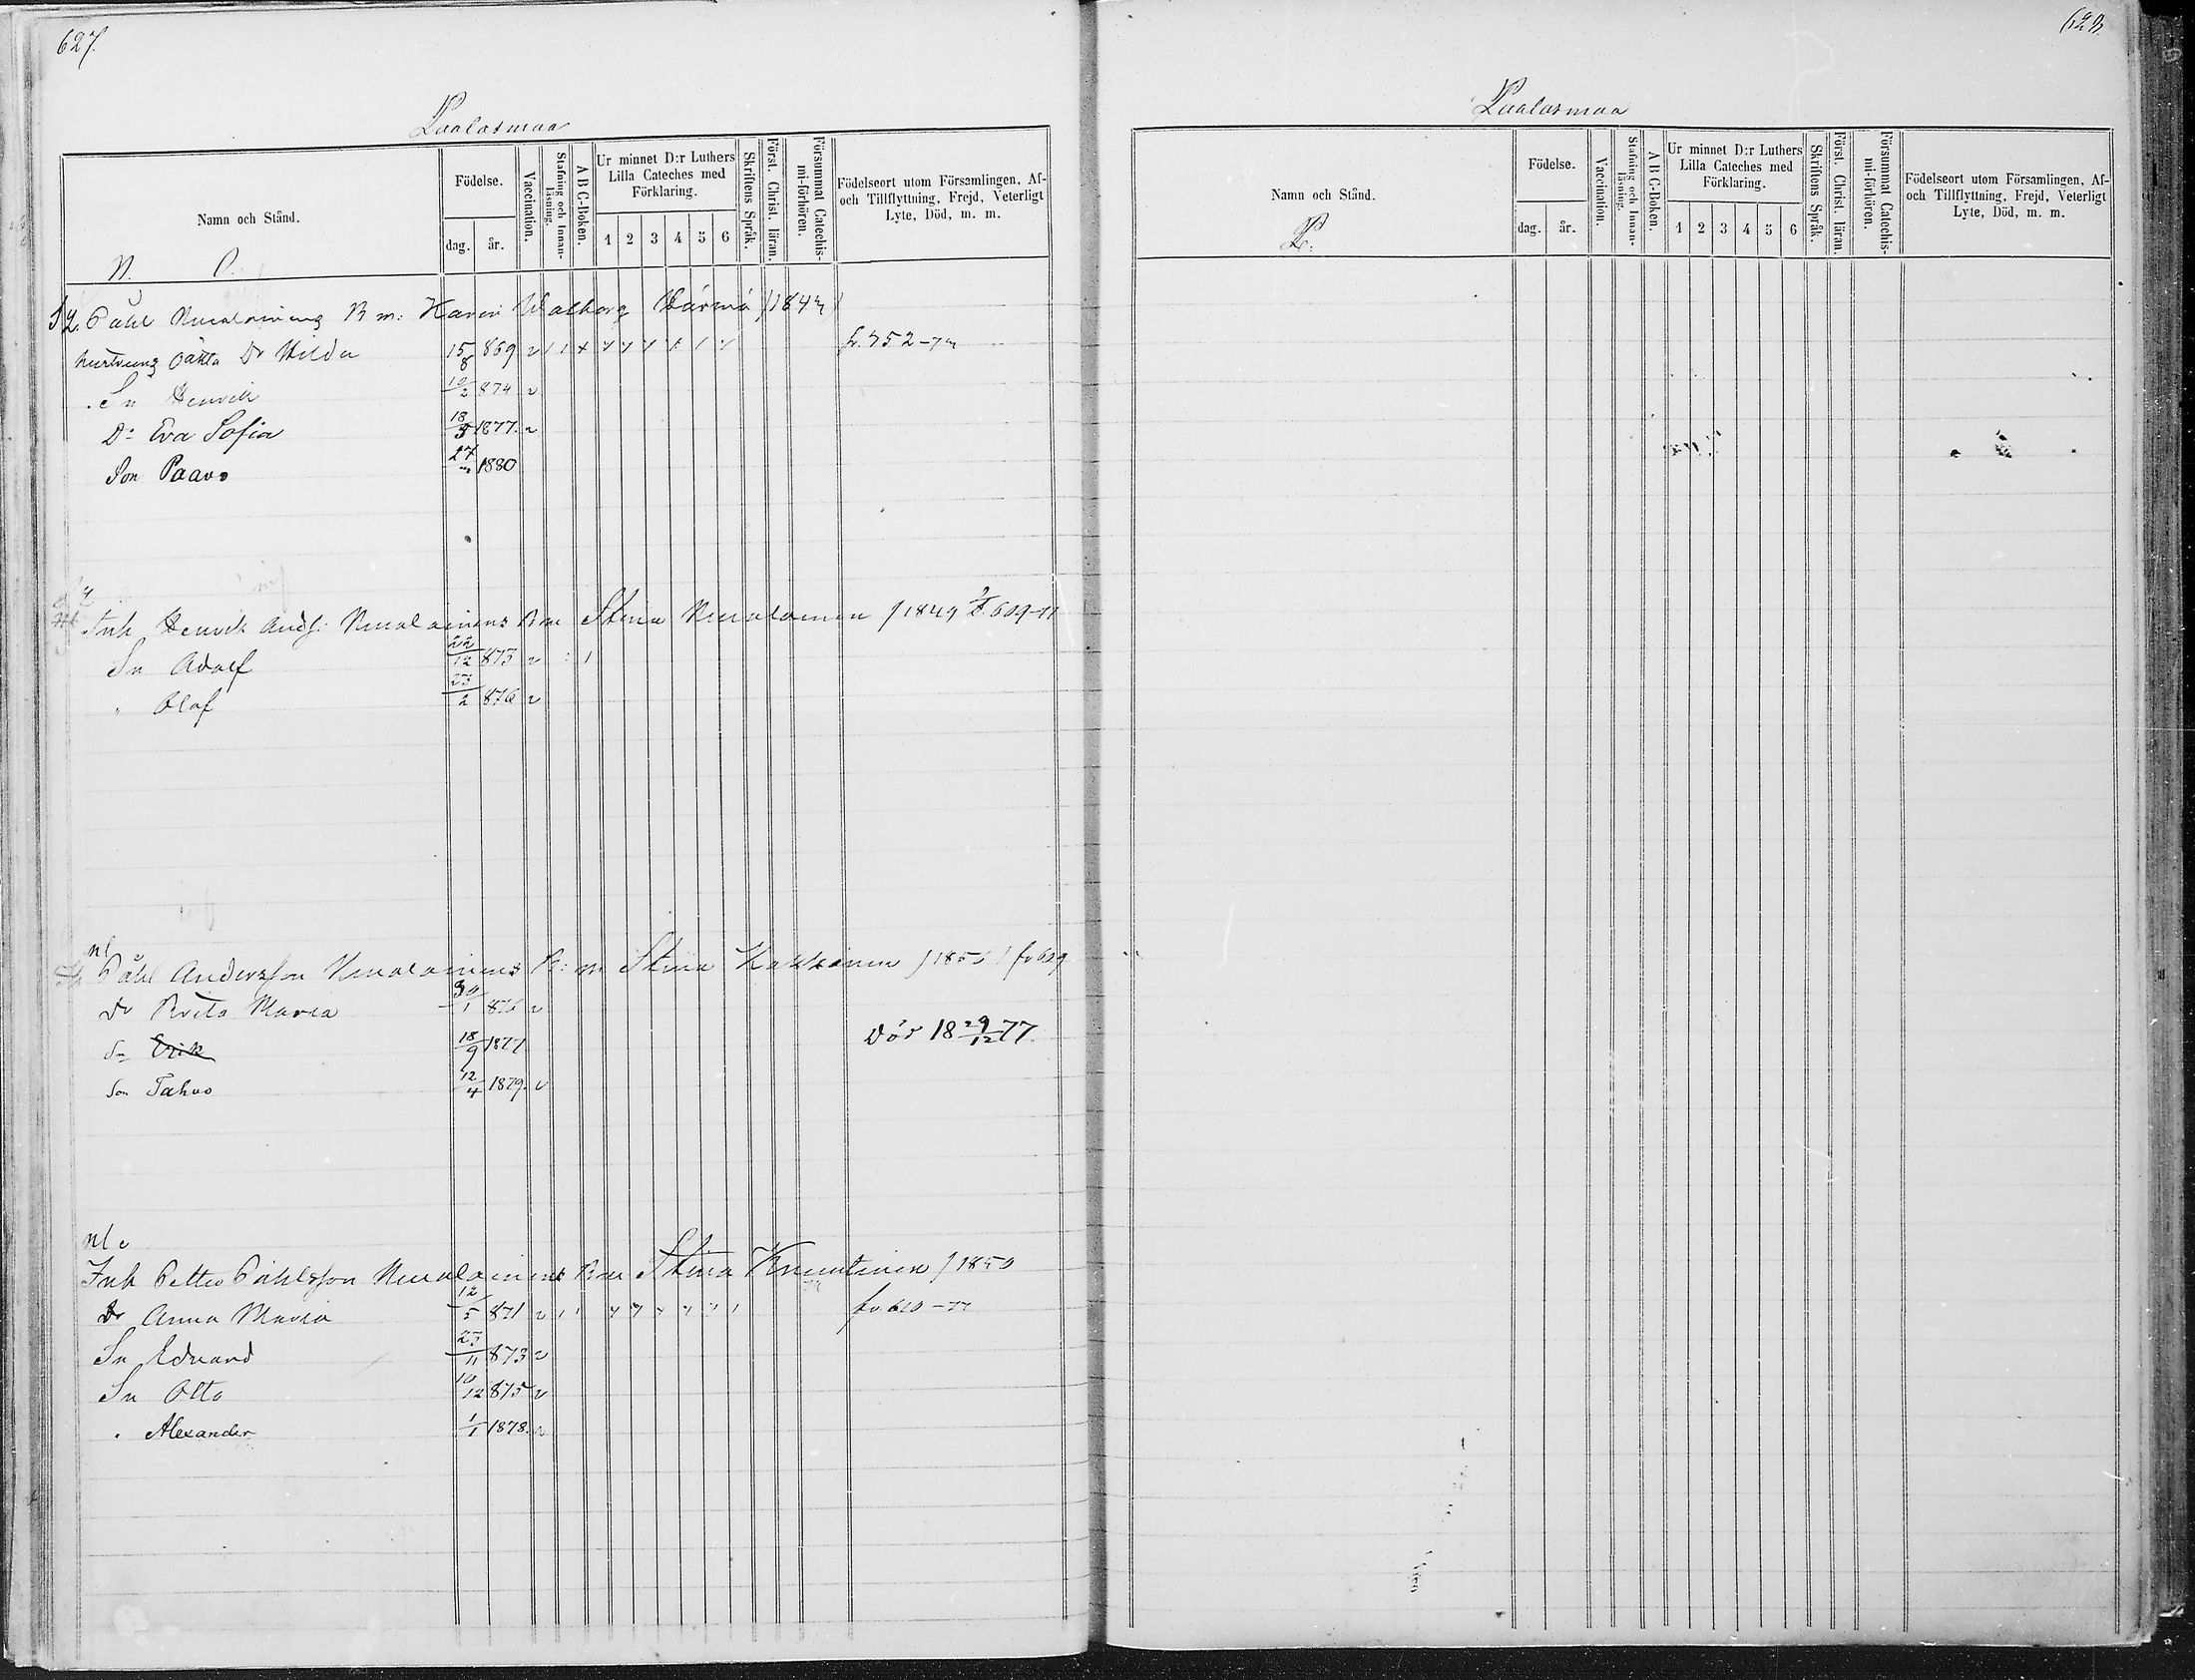 627.
Laalasmaa
Namn och Stånd.
Födelse.
dag. år.
Vaccination.
Stafning och Innan-läsning.
A B C-Boken.
Ur minnet D:r Luthers Lilla Cateches med Förklaring.
1 2 3 4 5 6
Skriftens Språk.
Först. Christ. läran.
Försummat Catechis-mi-förhören.
Födelseort utom Församlingen, Af- och Tillflyttning, Frejd, Veterligt Lyte, Död, m. m.
N. O.
Påhl Nuolainens B m: Karin Walborg 1843
Dr Hilda 15/8 869 v f. 752-73
Sn Henrik 10/2 874 v
D: Eva Sofia 18/3 1877. v
Son Paavo 27 1880
Inh Henrik Ands: Nuolainens B m Stina Nuolainen /1849 609-77
Sn Adolf 22/12 873 v
" Olaf 23/2 876 v
Påhl Andersson Nuolainens B: m Stina Kakkonen /185 fr 609
Dr Brita Maria 30/1 876 v
Sn Erik 18/9 1877 Död 18 29/12 77.
Son Tahvo 12/4 1879. v
Inh Petter Påhlsson Nuolainens B m Stina Knuutinen /1850
Dr Anna Maria 12/5 871 v fr. 610-77
Sn Edvard 23/11 873 v
Sn Otto 10/12 875 v
" Alexander 1/1 1878. v
628.
Laalasmaa
Namn och Stånd.
L.
Födelse.
dag. år.
Vaccination.
Stafning och Innan-läsning.
A B C-Boken.
Ur minnet D:r Luthers Lilla Cateches med Förklaring.
1 2 3 4 5 6
Skriftens Språk.
Först. Christ. läran.
Försummat Catechis-mi-förhören.
Födelseort utom Församlingen, Af- och Tillflyttning, Frejd, Veterligt Lyte, Död, m. m.